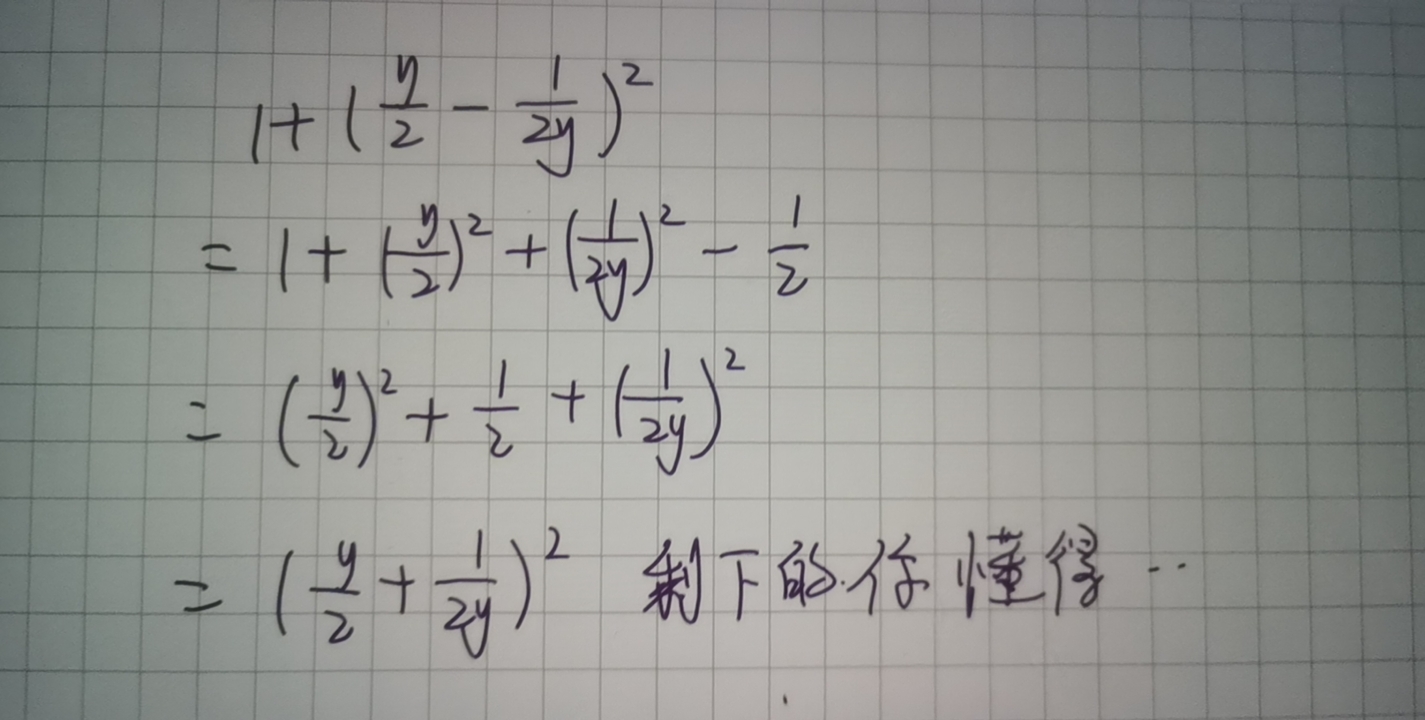 1+(y/2 - 1/2y)²
= 1+(y/2)²+(1/2y)² - 1/2
= (y/2)²+1/2+(1/2y)²
= (y/2+1/2y)² 剩下的你懂得··